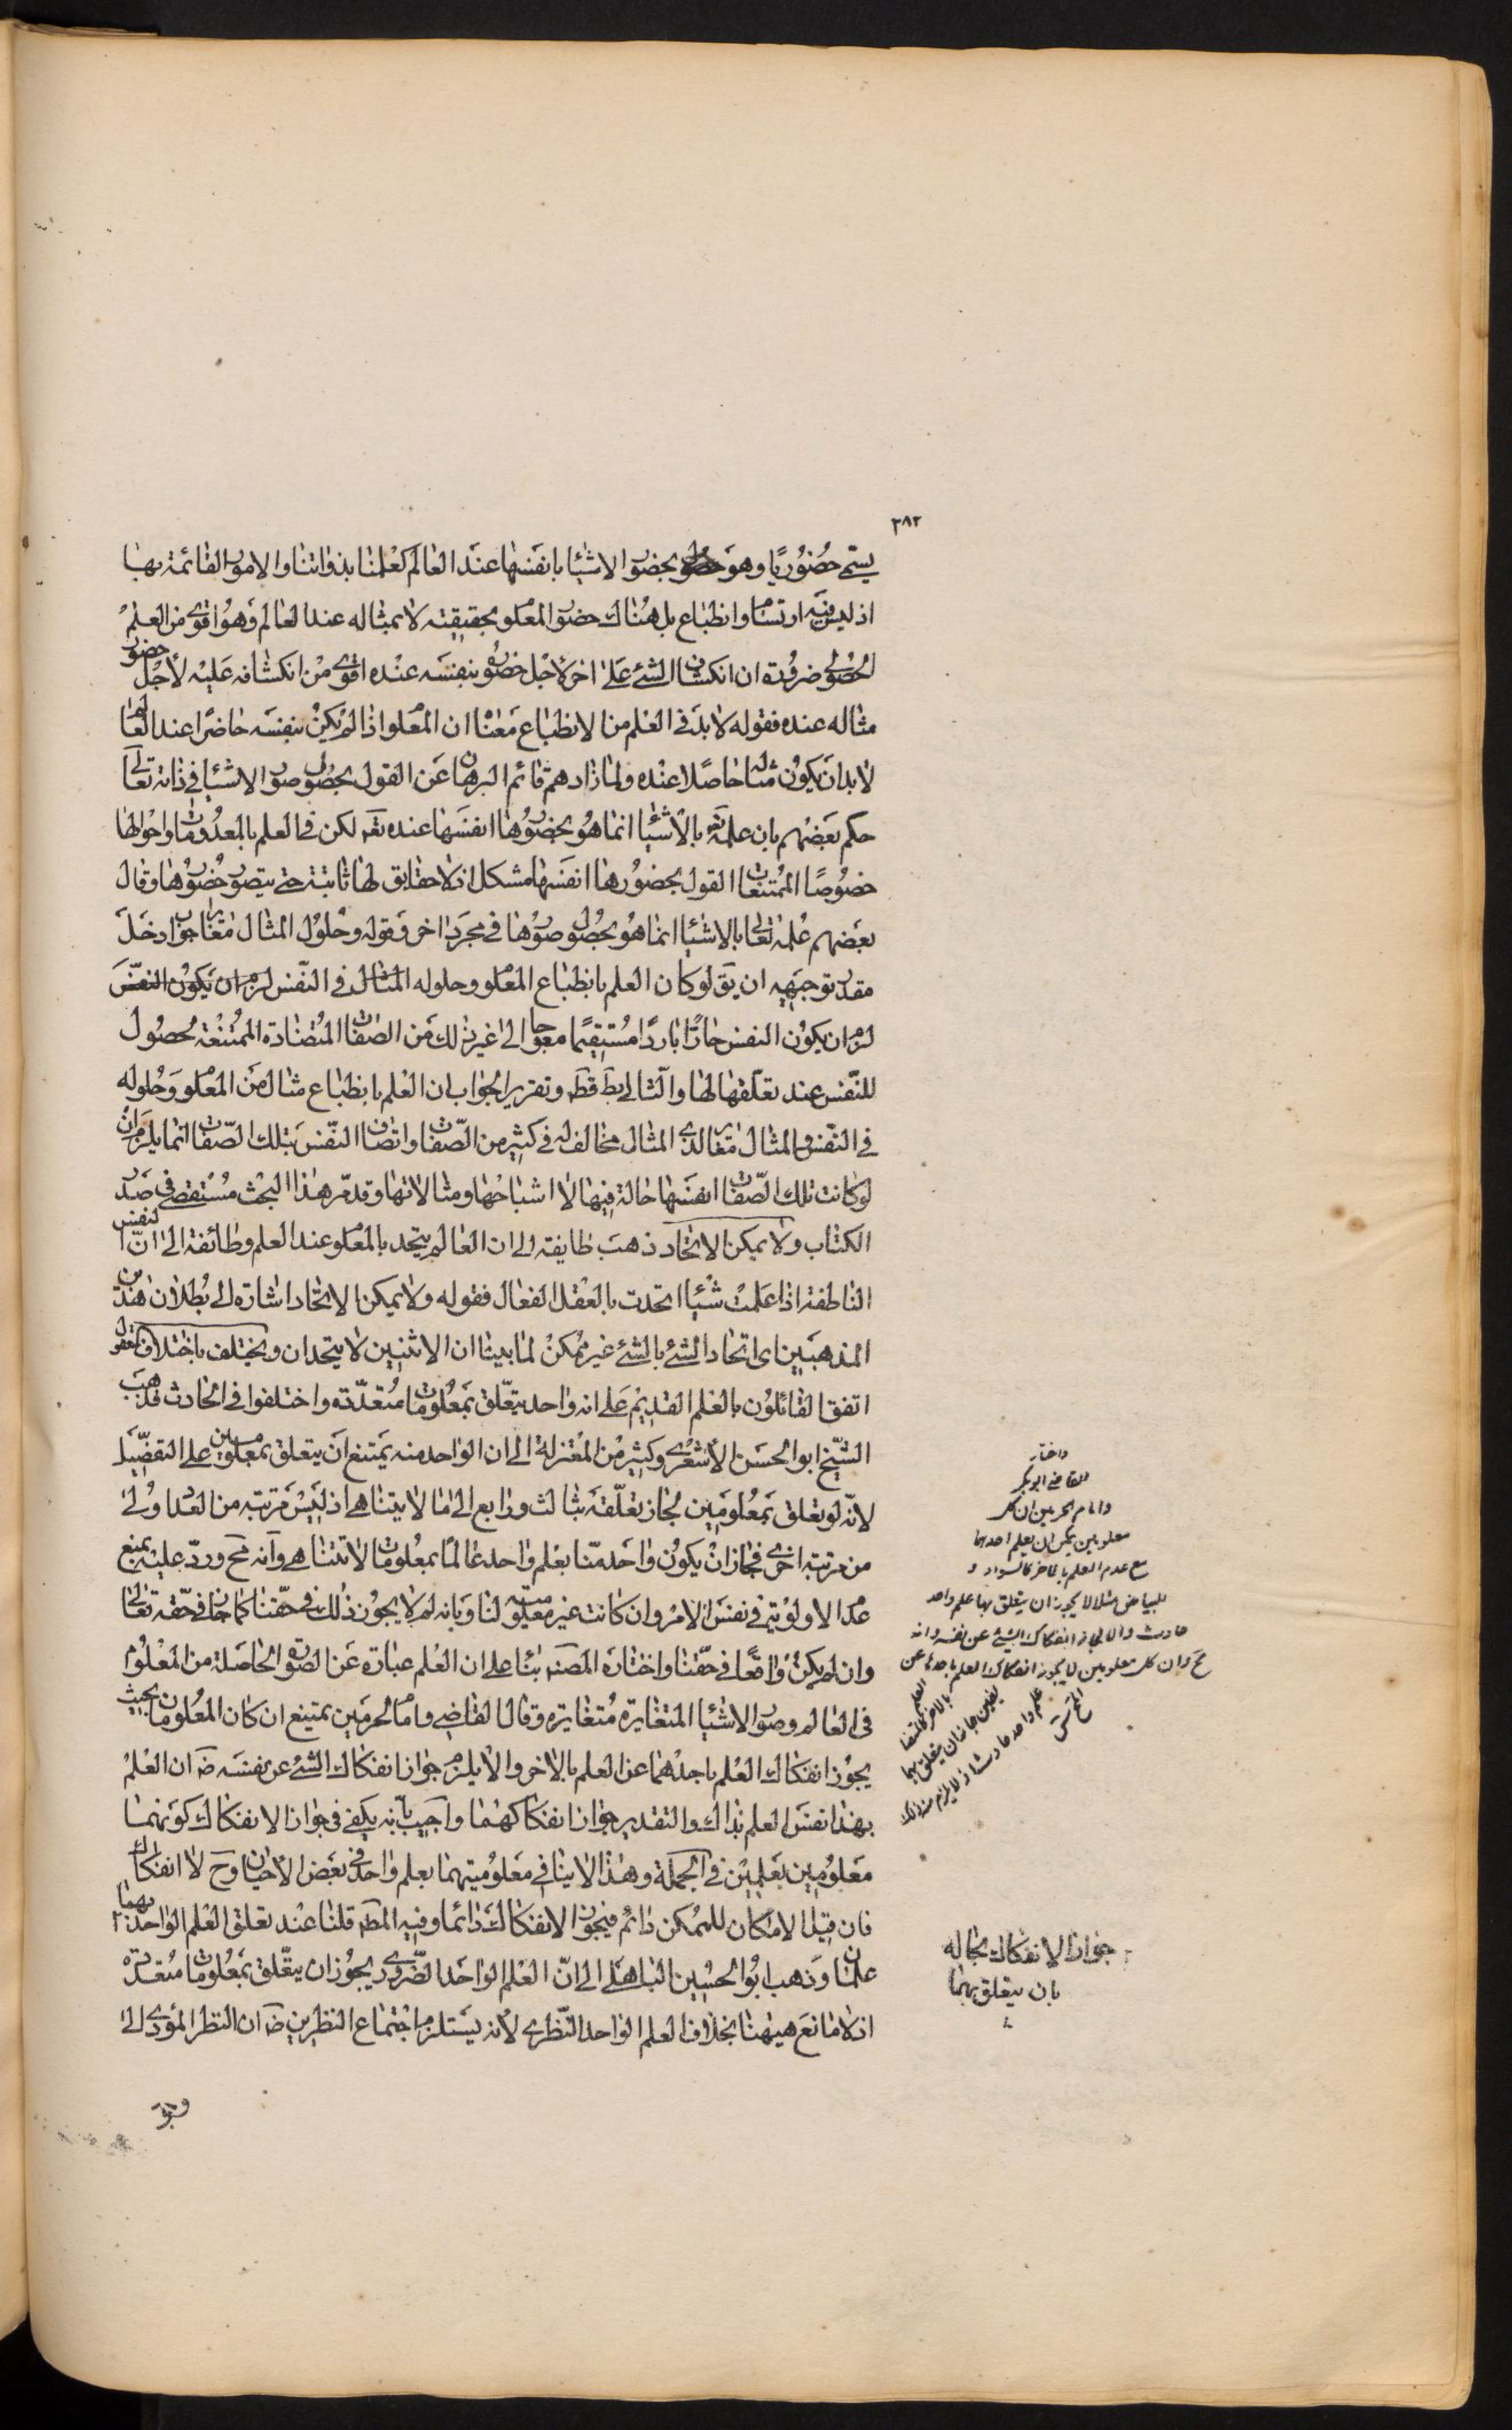 ٣٨٢
يسمى حضوريا وهو بحضور الاشياء بانفسها عند العالم كعلمنا بذواتنا والامور القائمة بها
اذ ليس فيه ارتسام وانطباع بل هناك حضور المعلوم بحقيقته لا بمثاله عند العالم وهو اقوى من العلم
الحصولي ضرورة ان انكشاف الشئ على اخر لاجل حضوره بنفسه عنده اقوى من انكشافه عليه لاجل حضور
مثاله عنده فقوله لا بد في العلم من الانطباع معناه ان المعلوم اذا لم يكن بنفسه حاضرا عند العالم
لا بد ان يكون مثاله حاصلا عنده ولما زادهم قائم البرهان عن القول بحصول صور الاشياء في ذاته تعالى
حكم بعضهم بان علمه تعه بالاشياء انما هو بحضورها انفسها عنده تعه لكن في العلم بالمعدومات واحوالها
خصوصا الممتنعات القول بحضورها انفسها مشكل اذ لا حقايق لها ثابتة حتى يتصور حضورها وقال
بعضهم علمه تعالى بالاشياء انما هو بحصول صورها في مجرد اخر وقوله وحلول المثال مغاير جواب دخل
مقدر توجيهه ان يق لو كان العلم بانطباع المعلوم وحلوله المثال في النفس لزم ان يكون النفس
لزم ان يكون النفس حارا باردا مستقيما معوجا الى غير ذلك من الصفات المتضادة الممتنعة حصول
للنفس عند تعلقها لها والتالي بط قطه وتقرير الجواب ان العلم بانطباع مثال من المعلوم وحلوله
في النفس والمثال مغاير لذي المثال مخالف له في كثير من الصفات واتصاف النفس بتلك الصفات انما يلزم ان
لو كانت تلك الصفات انفسها حالة فيها لا اشباحها ومثالاتها وقد مر هذا البحث مستقصى في صدر
الكتاب ولا يمكن الاتحاد ذهب طايفة الى ان العالم يتحد بالمعلوم عند العلم وطائفة الى ان النفس
الناطقة اذا علمت شيئا اتحدت بالعقل الفعال فقوله ولا يمكن الاتحاد اشارة الى بطلان هذين
المذهبين اى اتحاد الشئ بالشئ غير ممكن لما بينا ان الاثنين لا يتحدان ويختلف باختلاف المعقول
اتفق القائلون بالعلم القديم على انه واحد يتعلق بمعلومات متعددة واختلفوا في الحادث فذهب
الشيخ ابو الحسن الاشعري وكثير من المعتزلة الى ان الواحد منه يمتنع ان يتعلق بمعلومين على التفصيل
لانه لو تعلق بمعلومين لجاز تعلقه بثالث ورابع الى ما لا يتناهى اذ ليس مرتبة من العدد اولى
من مرتبة اخرى فجاز ان يكون واحد منا بعلم واحد عالما بمعلومات لا تتناهى وانه مح ورد عليه بمنع
عدم الاولوية في نفس الامر وان كانت غير معلومة لنا وبانه لم لا يجوز ذلك في حقنا كما جاز في حقه تعالى
وان لم يكن واقعا في حقنا واختاره المصنف بناء على ان العلم عبارة عن الصورة الحاصلة من المعلوم
في العالم وصور الاشياء المتغايرة متغايرة وقال القاضي وامام الحرمين يمتنع ان كان المعلومان بحيث
يجوز انفكاك العلم باحدهما عن العلم بالاخر والا يلزم جواز انفكاك الشئ عن نفسه ضه ان العلم
بهذا نفس العلم بذاك والتقدير جواز انفكاكهما واجيب بانه يكفي في جواز الانفكاك كونهما
معلومين بعلمين في الجملة وهذا لا ينافي معلوميتهما بعلم واحد في بعض الاحيان وح لا انفكاك
فان قيل الامكان للممكن دائم فيجوز الانفكاك دائما وفيه المط قلنا عند تعلق العلم الواحد بهما
علمان وذهب ابو الحسين الباهلي الى ان العلم الواحد الضروري يجوز ان يتعلق بمعلومات متعددة
اذ لا مانع هيهنا بخلاف العلم الواحد النظري لانه يستلزم اجتماع النظرين ضه ان النظر المؤدي الى
واختار
القاضي ابوبكر
وامام الحرمين ان كل
معلومين يمكن ان يعلم احدهما
مع عدم العلم بالاخر كالسواد و
البياض مثلا لا يجوز ان يتعلق بهما علم واحد
حادث والا لجاز انفكاك الشئ عن نفسه وانه
مح وان كل معلومين لا يجوز انفكاك العلم باحدهما عن
العلم بالاخر
جاز ان يتعلق بهما
علم واحد حادث اذ لا يلزم منه ذلك
جواز الانفكاك بحاله
بان يتعلق بهما